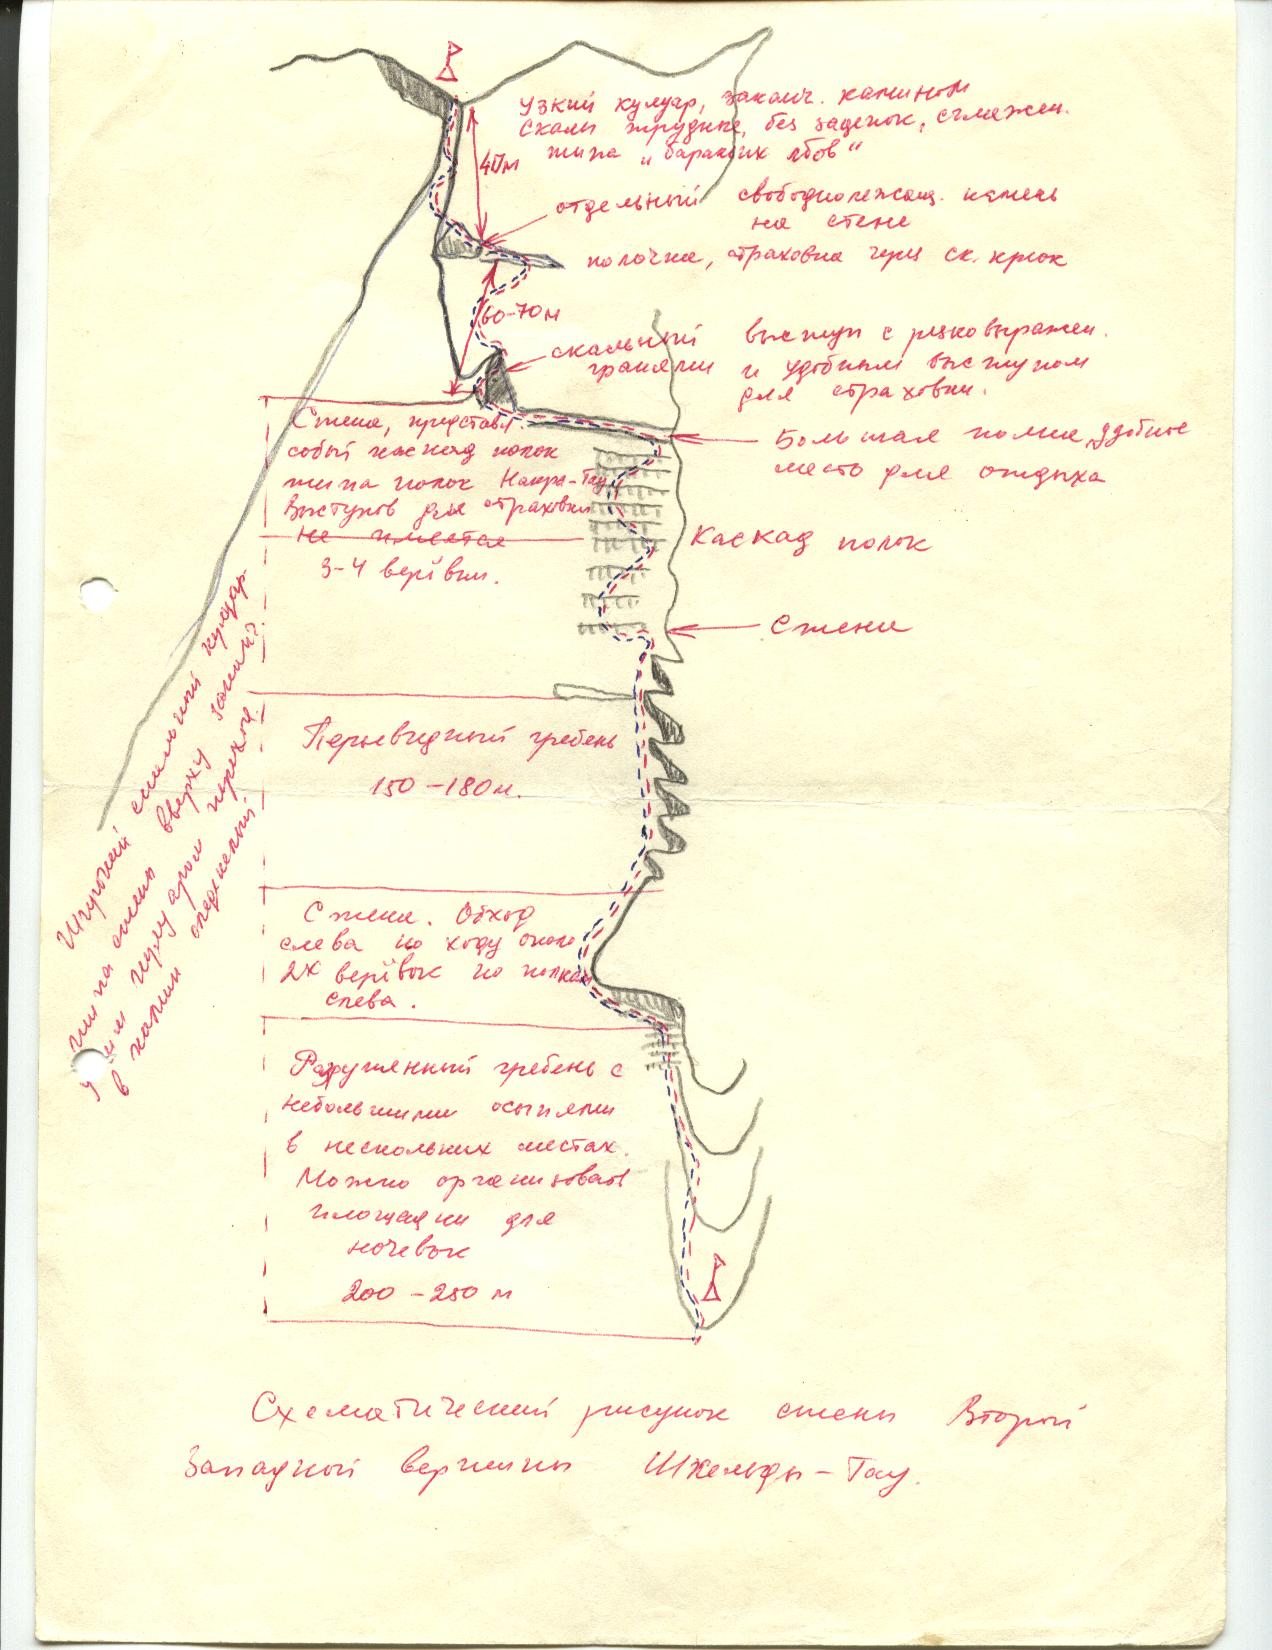 Узкий кулуар, заканч. камином
Скалы трудные, без зацепок, сглажен.
типа „бараньих лбов“
40м
отдельный свободнолежащ. камень
на стене
полочка, страховка через ск. крюк
60-70м
скальный выступ с резковыражен.
гранями и удобным выступом
для страховки.
Стена, представл.
собой каскад полок
типа полок Накра-Тау
Выступов для страховки
не имеется
3-4 верёвки.
Большая полка, удобное
место для отдыха
Каскад полок
Стена
Перьевидный гребень
150-180м.
Стена. Обход
слева по ходу около
2х верёвок по полкам
слева.
Разрушенный гребень с
небольшими осыпями
в нескольких местах.
Можно организовать
площадки для
ночёвок
200-250м
Широкий скальный кулуар
типа стены вверху заканч.
кулуаром переход.
в камин
Схематический рисунок стены Второй
Западной вершины Шхельды-Тау.